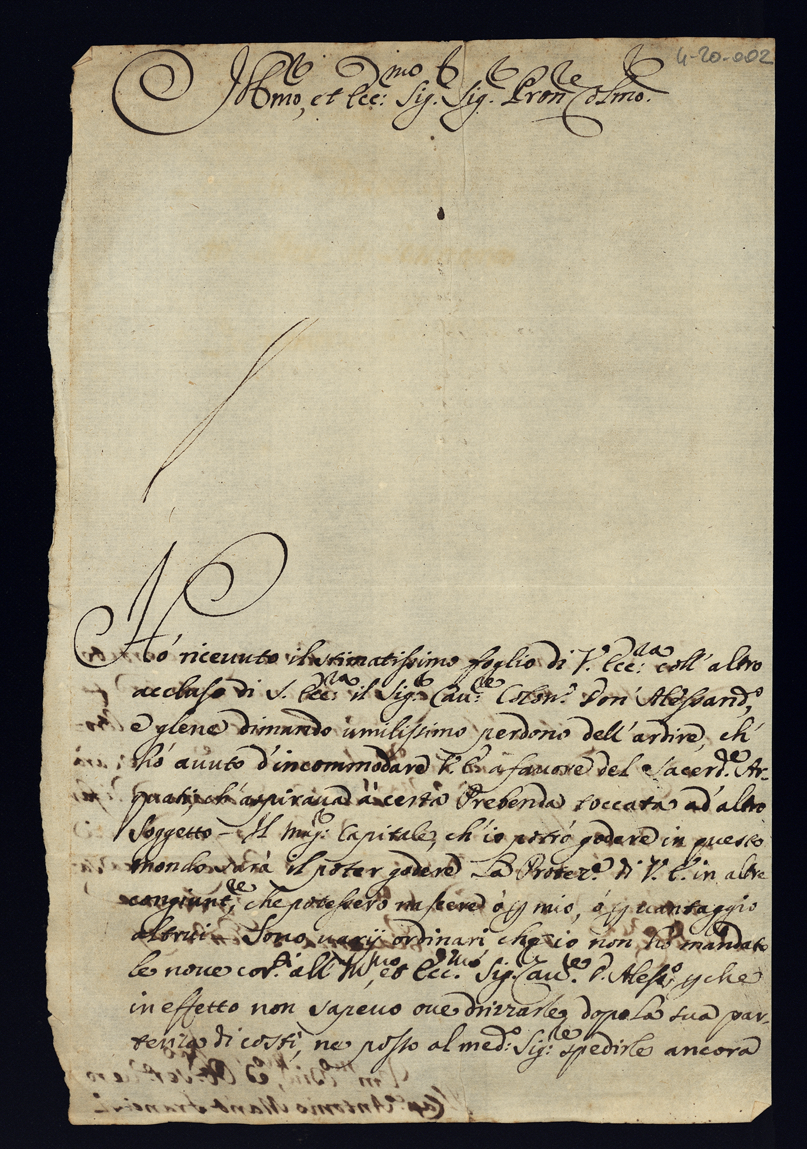 4-20-002
Ill.mo, et Ecc.mo Sig.r Sig.r Pron Colmo.
Hó riceuuto il stimatissimo foglio di V. Ecc.za coll' altro
accluso di S. Ecc.za il Sig.r Cau.re Colon.o Don Alessand.o,
e gliene dimando umilissimo perdono dell' ardire, ch'
hó auuto d' incommodare V. E. á fauore del Sacerd.te Ar-
quati, ch' aspiraua á certa Prebenda toccata ad' altro
Soggetto - Il mag.r Capitale, ch' io potró godere in questo
mondo sará il poter godere La Protez.e di V. E. in altre
congiunt.re, che potessero nascere ó p mio, ó p uantaggio
altrui. Sono uarij ordinari che io non hó mandato
le noue cor.ti all' Ill.mo, et Ecc.mo Sig. Cau.re D. Aless.o, p che
in effetto non sapeuo oue drizzarle, dopo la sua par-
tenza di costi, ne posso al med.o Sig.re spedirle ancora